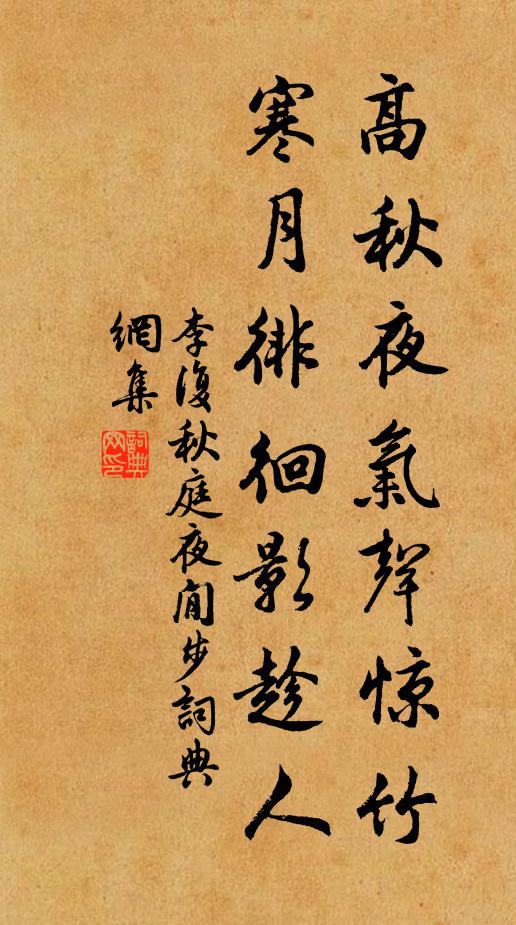 高秋夜氣聲惊竹
寒月徘徊影趁人
李復秋庭夜閒步詞典
網集
詞典
网印